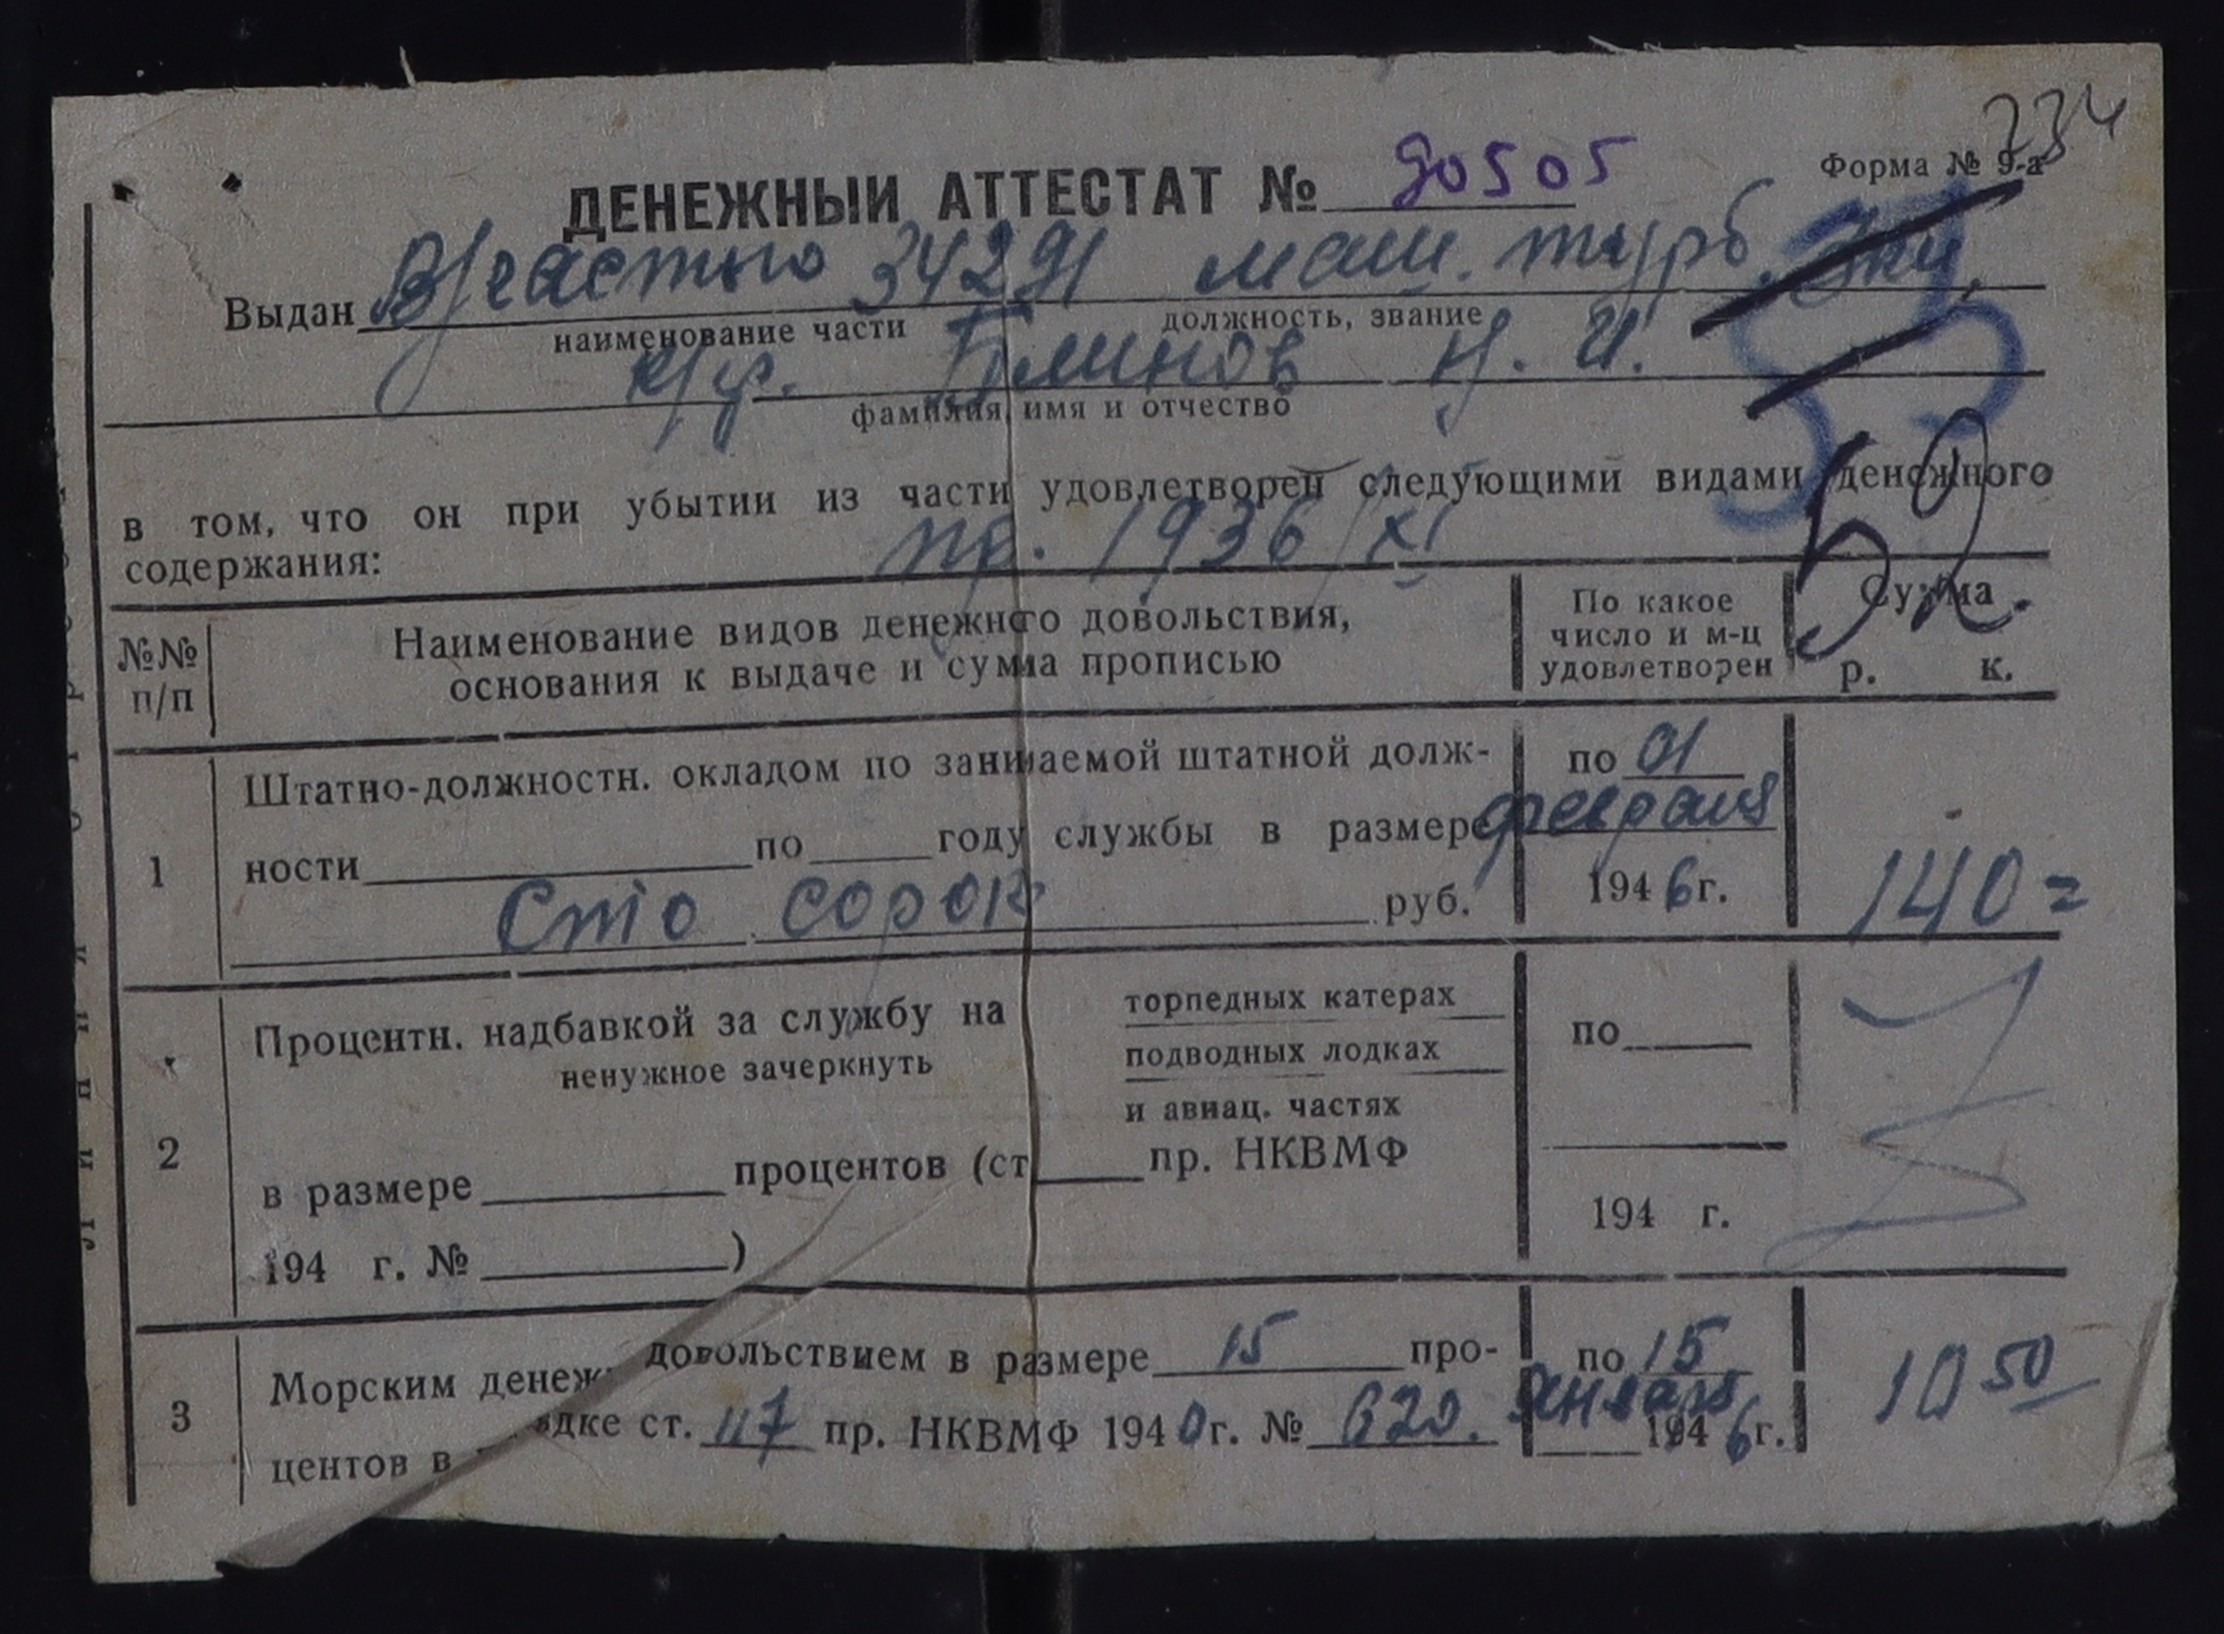 234
Форма № 9-а
ДЕНЕЖНЫЙ АТТЕСТАТ № 90505
Выдан В/частью 34291 маш. турб.
наименование части должность, звание
к/ф. Блинов Н. И.
фамилия, имя и отчество
в том, что он при убытии из части удовлетворен следующими видами денежного
содержания: пр. 1936/XI
№№ п/п
Наименование видов денежного довольствия,
основания к выдаче и сумма прописью
По какое
число и м-ц
удовлетворен
Сумма
р. к.
1
Штатно-должностн. окладом по занимаемой штатной долж-
ности по году службы в размере
Сто сорок руб.
по 01
февраля
1946г.
140=
2
Процентн. надбавкой за службу на
ненужное зачеркнуть
торпедных катерах
подводных лодках
и авиац. частях
в размере процентов (ст пр. НКВМФ
194 г. № )
по
194 г.
3
Морским денежн довольствием в размере 15 про-
центов в ядке ст. 117 пр. НКВМФ 1940г. № 620.
по 15
января
1946г.
10 50